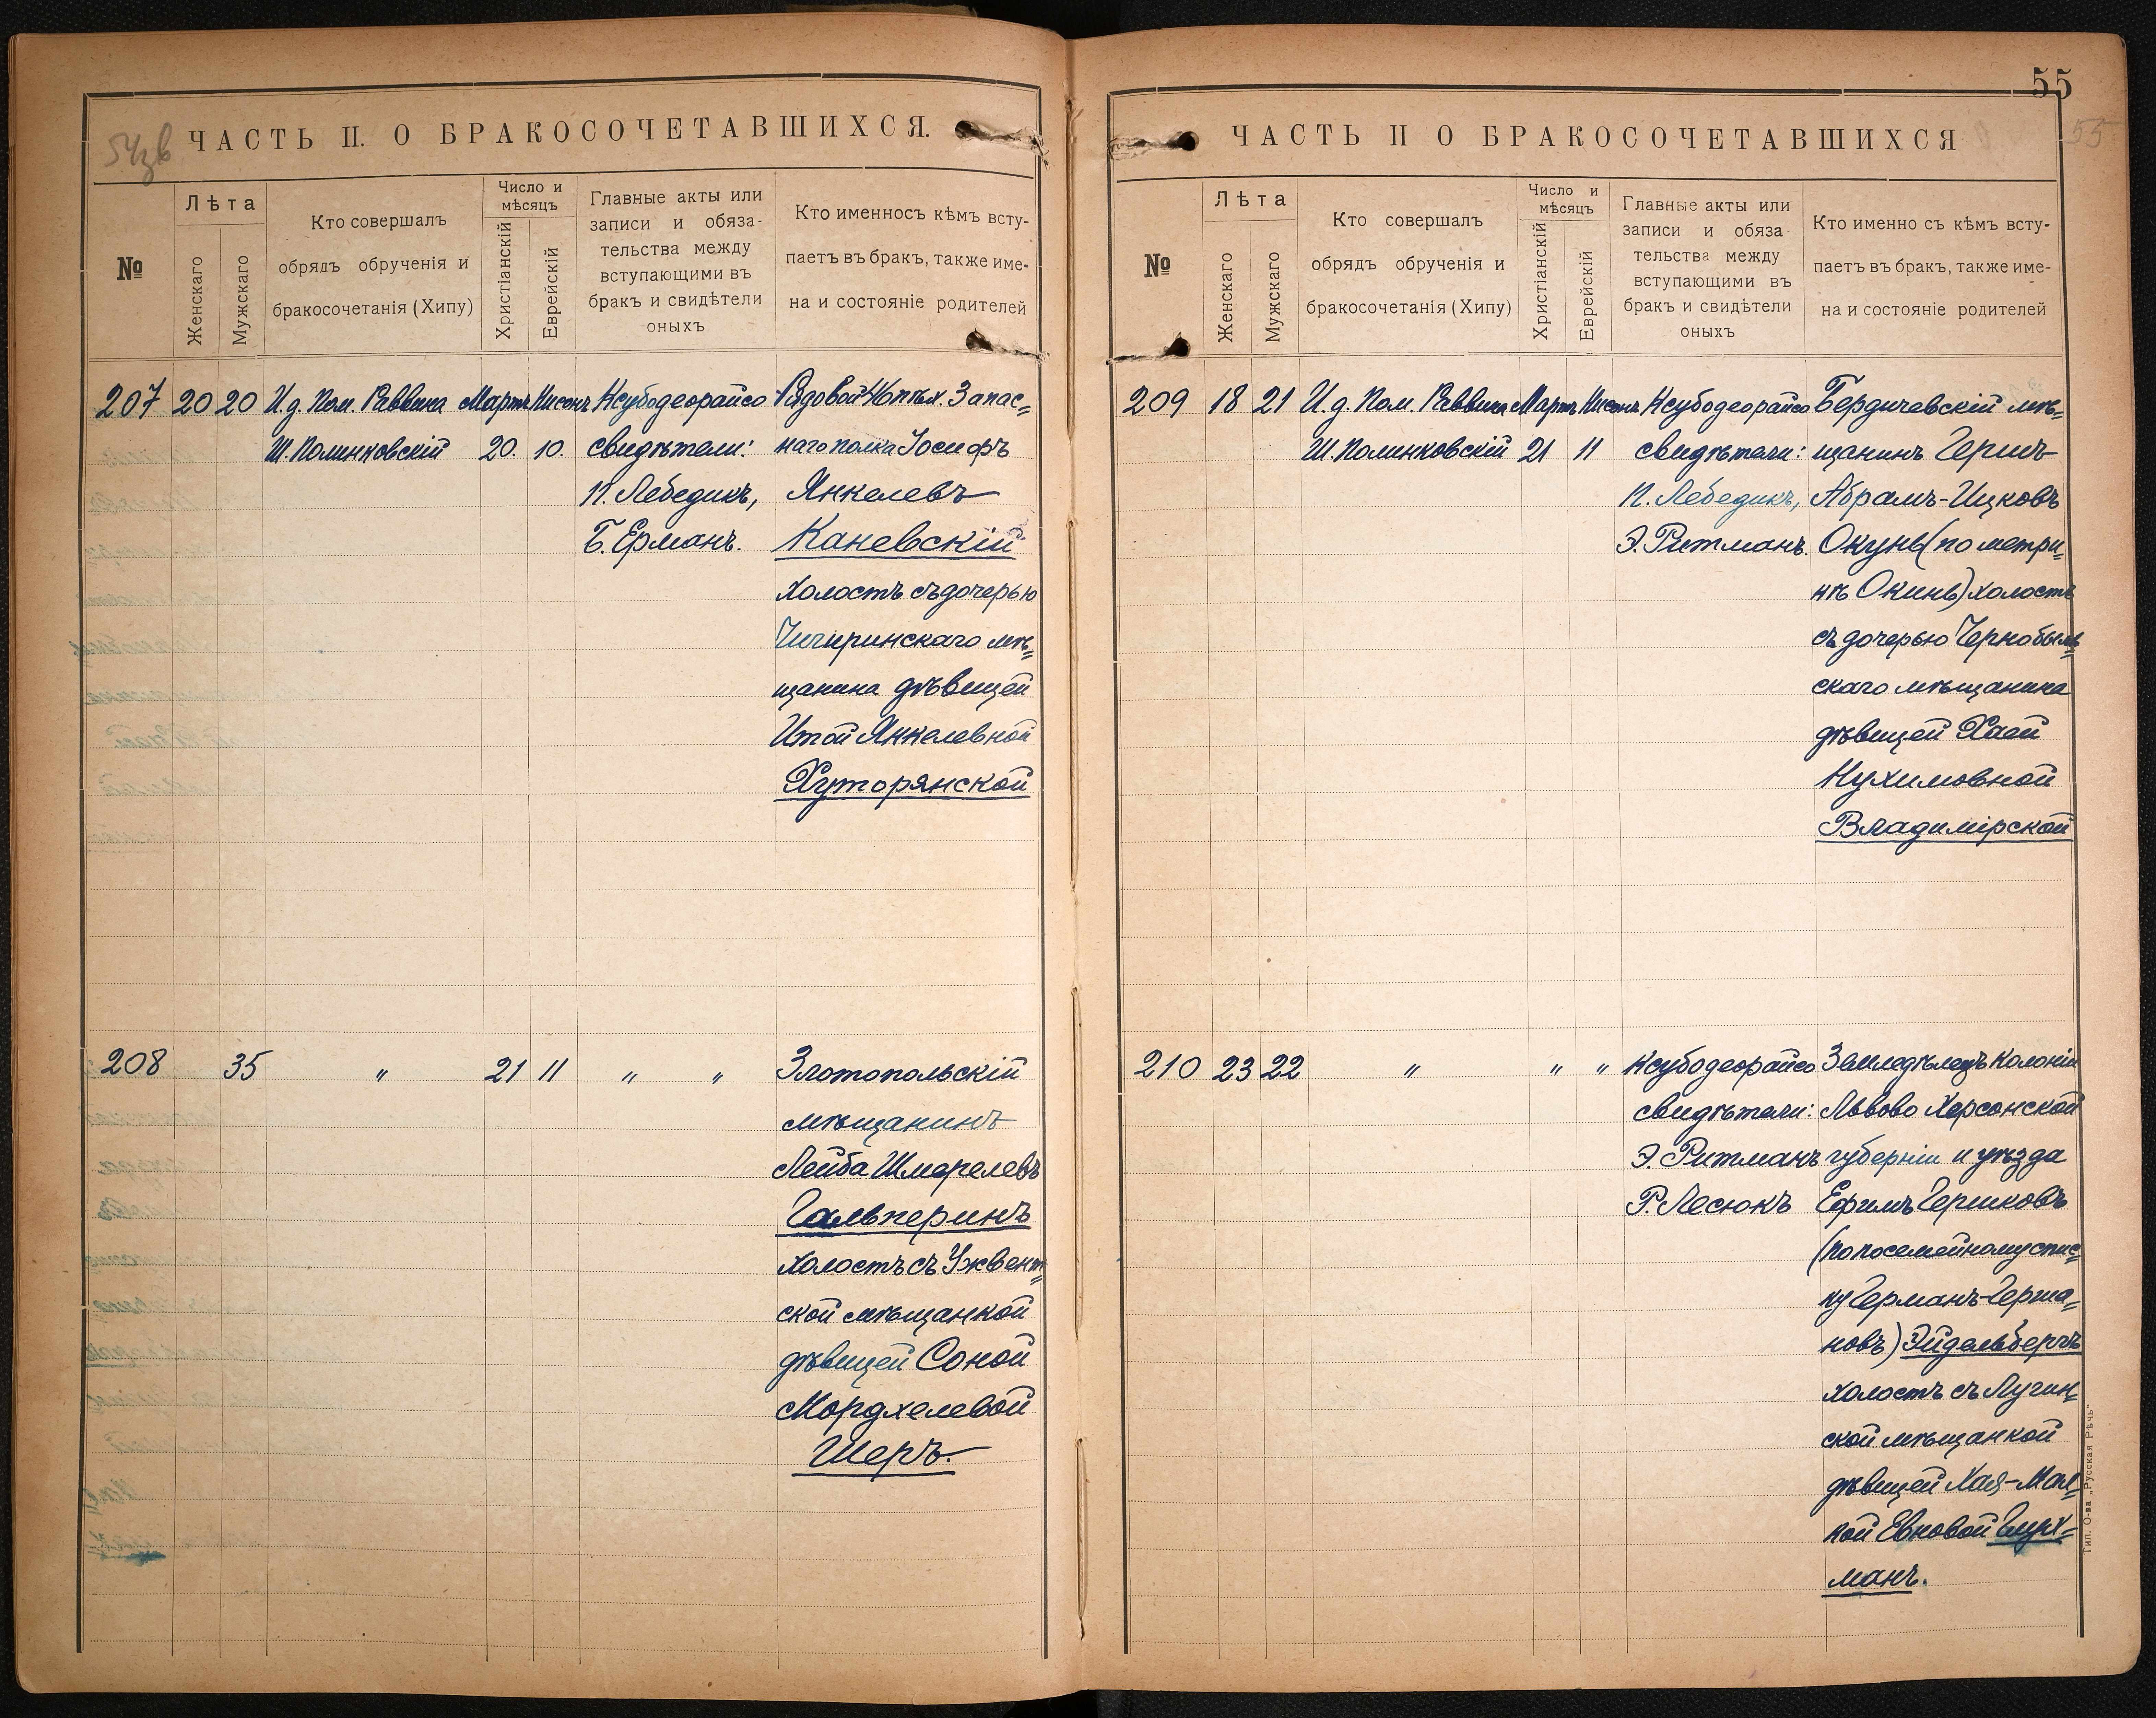 54зв
ЧАСТЬ II. О БРАКОСОЧЕТАВШИХСЯ.
№
Лѣта
Женскаго
Мужскаго
Кто совершалъ
обрядъ обрученія и
бракосочетанія (Хипу)
Число и
мѣсяцъ
Христіанскій
Еврейскій
Главные акты или
записи и обяза-
тельства между
вступающими въ
бракъ и свидѣтели
оныхъ
Кто именносъ кѣмъ всту-
паетъ въ бракъ, также име-
на и состояніе родителей
207 20 20 И.д. Пом. Раввина Мартъ Нисонъ Ксубодеорайсо Рядовой пѣх. Запас=
Ш. Полинковскій 20. 10. свидѣтели: наго полка Іосифъ
П. Лебедикъ, Янкелевъ
Б. Ерманъ. Каневскій
холостъ съ дочерью
Чигиринскаго мѣ=
щанина дѣвицей
Итой Янкелевной
Хуторянской
208 35 " 21 11 " " Злотопольскій
мѣщанинъ
Лейба Шмерелевъ
Гальперинъ
холостъ съ Ужвент=
ской мѣщанкой
дѣвицей Соной
Мордхелевой
Шеръ.
55
55
ЧАСТЬ II О БРАКОСОЧЕТАВШИХСЯ
№
Лѣта
Женскаго
Мужскаго
Кто совершалъ
обрядъ обрученія и
бракосочетанія (Хипу)
Число и
мѣсяцъ
Христіанскій
Еврейскій
Главные акты или
записи и обяза-
тельства между
вступающими въ
бракъ и свидѣтели
оныхъ
Кто именно съ кѣмъ всту-
паетъ въ бракъ, также име-
на и состояніе родителей
209 18 21 И.д. Пом. Раввина Мартъ Нисонъ Ксубодеорайсо Бердичевскій мѣ=
Ш. Полинковскій 21 11 свидѣтели: щанинъ Герш
П. Лебедикъ, Абрамъ-Ицковъ
Э. Ритманъ. Окунь (по метри=
кѣ Окинь) холостъ
съ дочерью Чернобыль=
скаго мѣщанина
дѣвицей Хаей
Нухимовной
Владимірской
210 23 22 " " " Ксубодеорайсо Земледѣлецъ колоніи
свидѣтели: Львово Херсонской
Э. Ритманъ губерніи и уѣзда
Р. Лесюкъ Ефимъ Гершковъ
(по посемейному спис=
ку Германъ-Герша=
новъ) Эйдельбергъ
холостъ съ Лугин=
ской мѣщанкой
дѣвицей Хая-Мал=
кой Евновой Гирх=
манъ.
Тип. О-ва „Русская Рѣчь"